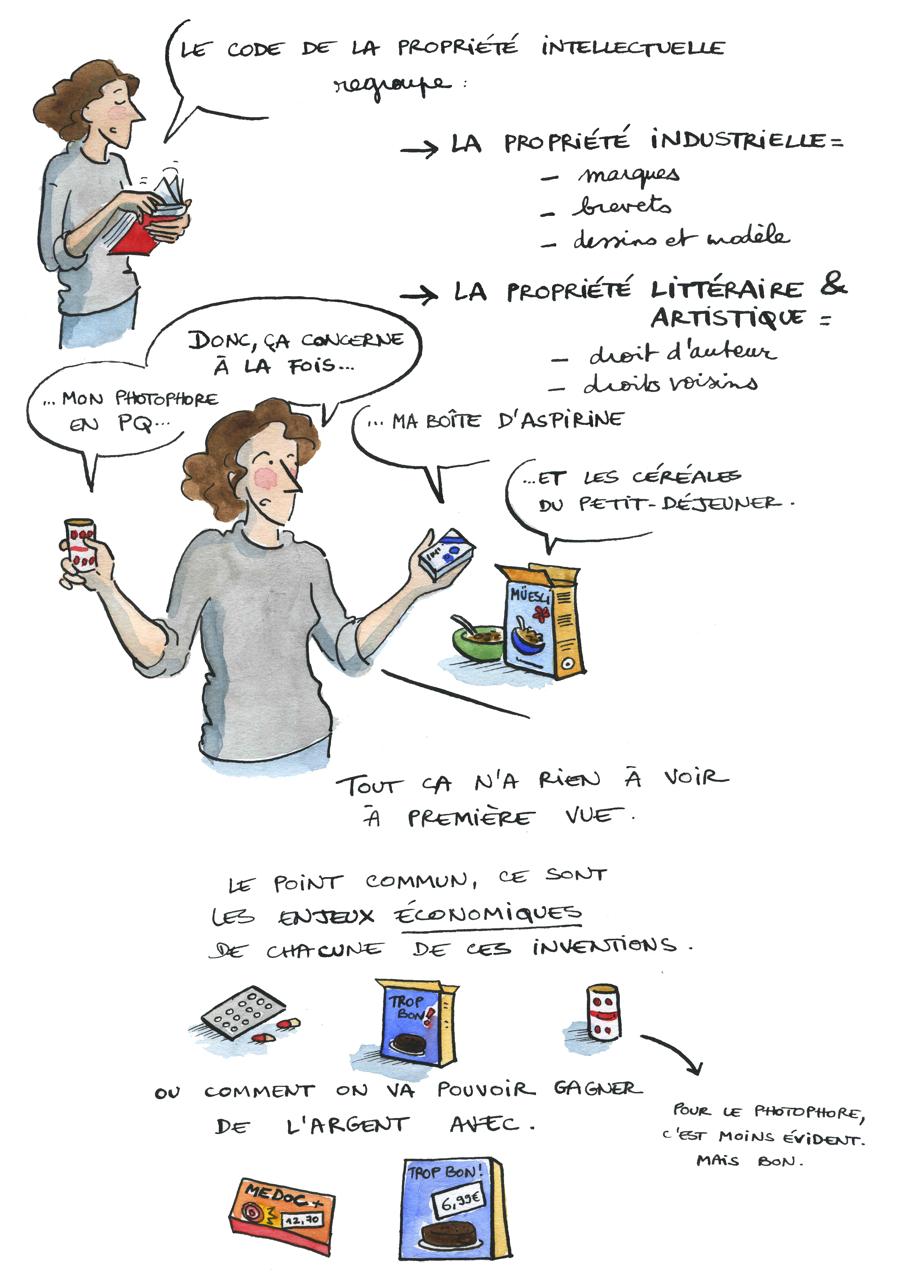 LE CODE DE LA PROPRIÉTÉ INTELLECTUELLE
regroupe :
→ LA PROPRIÉTÉ INDUSTRIELLE =
– marques
– brevets
– dessins et modèle
→ LA PROPRIÉTÉ LITTÉRAIRE &
ARTISTIQUE =
– droit d'auteur
– droits voisins
DONC, ÇA CONCERNE
À LA FOIS...
... MON PHOTOPHORE
EN PQ...
... MA BOÎTE D'ASPIRINE
...ET LES CÉRÉALES
DU PETIT-DÉJEUNER.
MÜESLI
TOUT ÇA N'A RIEN À VOIR
À PREMIÈRE VUE.
LE POINT COMMUN, CE SONT
LES ENJEUX ÉCONOMIQUES
DE CHACUNE DE CES INVENTIONS.
TROP
BON!
OU COMMENT ON VA POUVOIR GAGNER
DE L'ARGENT AVEC.
POUR LE PHOTOPHORE,
C'EST MOINS ÉVIDENT.
MAIS BON.
MEDOC+
12,70
TROP BON!
6,99€